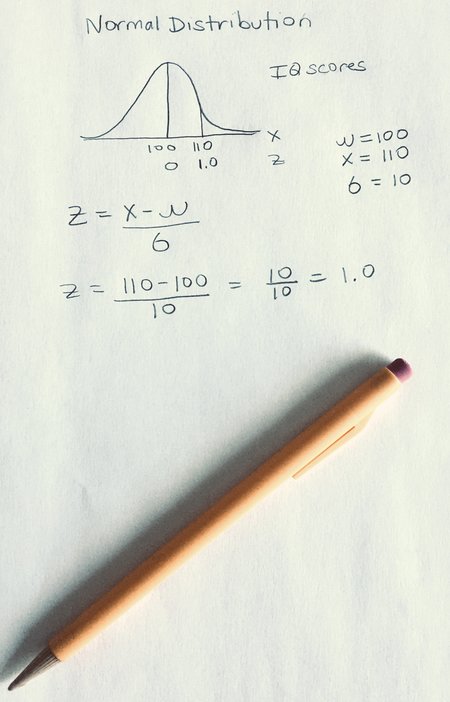 Normal Distribution
IQ scores
100 110 X
0 1.0 Z
μ = 100
X = 110
6 = 10
Z = X - μ
6
Z = 110 - 100 = 10 = 1.0
10 10